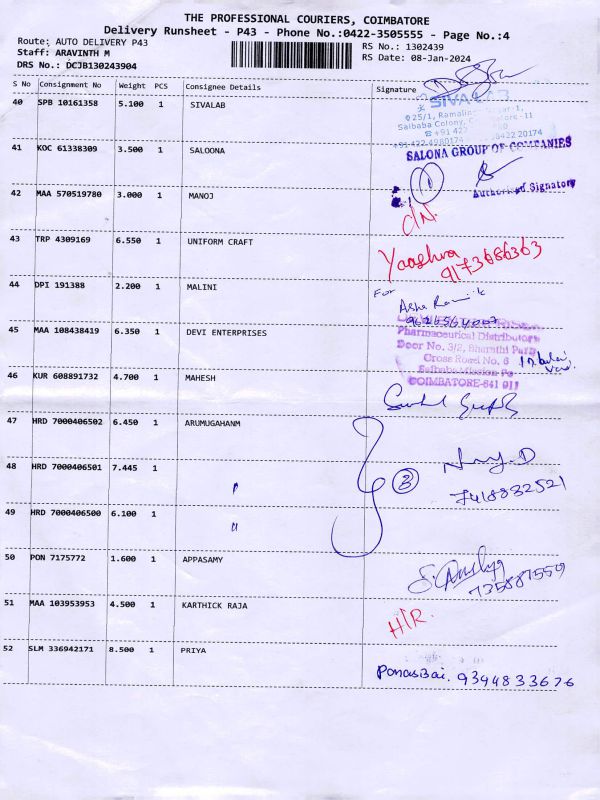 THE PROFESSIONAL COURIERS, COIMBATORE
Delivery Runsheet - P43 - Phone No.:0422-3505555 - Page No.:4
Route: AUTO DELIVERY P43
Staff: ARAVINTH M
DRS No.: DCJB130243904
RS No.: 1302439
RS Date: 08-Jan-2024
S No Consignment No Weight PCS Consignee Details Signature
40 SPB 10161358 5.100 1 SIVALAB
SIVALAB
25/1,
Saibaba Colony,
41 KOC 61338309 3.500 1 SALOONA
SALONA GROUP OF COMPANIES
Authorised Signatory
42 MAA 570519780 3.000 1 MANOJ
43 TRP 4309169 6.550 1 UNIFORM CRAFT
9173686363
44 DPI 191388 2.200 1 MALINI
For
Asha
45 MAA 108438419 6.350 1 DEVI ENTERPRISES
Pharmaceutical Distributors
Door No. 3/2, Bharathi Park
Cross Road No. 6
COIMBATORE-641 011
46 KUR 608891732 4.700 1 MAHESH
47 HRD 7000406502 6.450 1 ARUMUGAHANM
48 HRD 7000406501 7.445 1
3
7418832521
49 HRD 7000406500 6.100 1
50 PON 7175772 1.600 1 APPASAMY
51 MAA 103953953 4.500 1 KARTHICK RAJA
52 SLM 336942171 8.500 1 PRIYA
9344833676